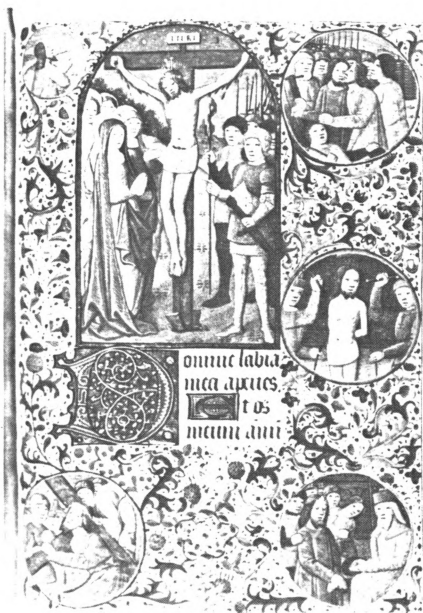 INRI
Domine labia
mea aperies
Et os
meum ann